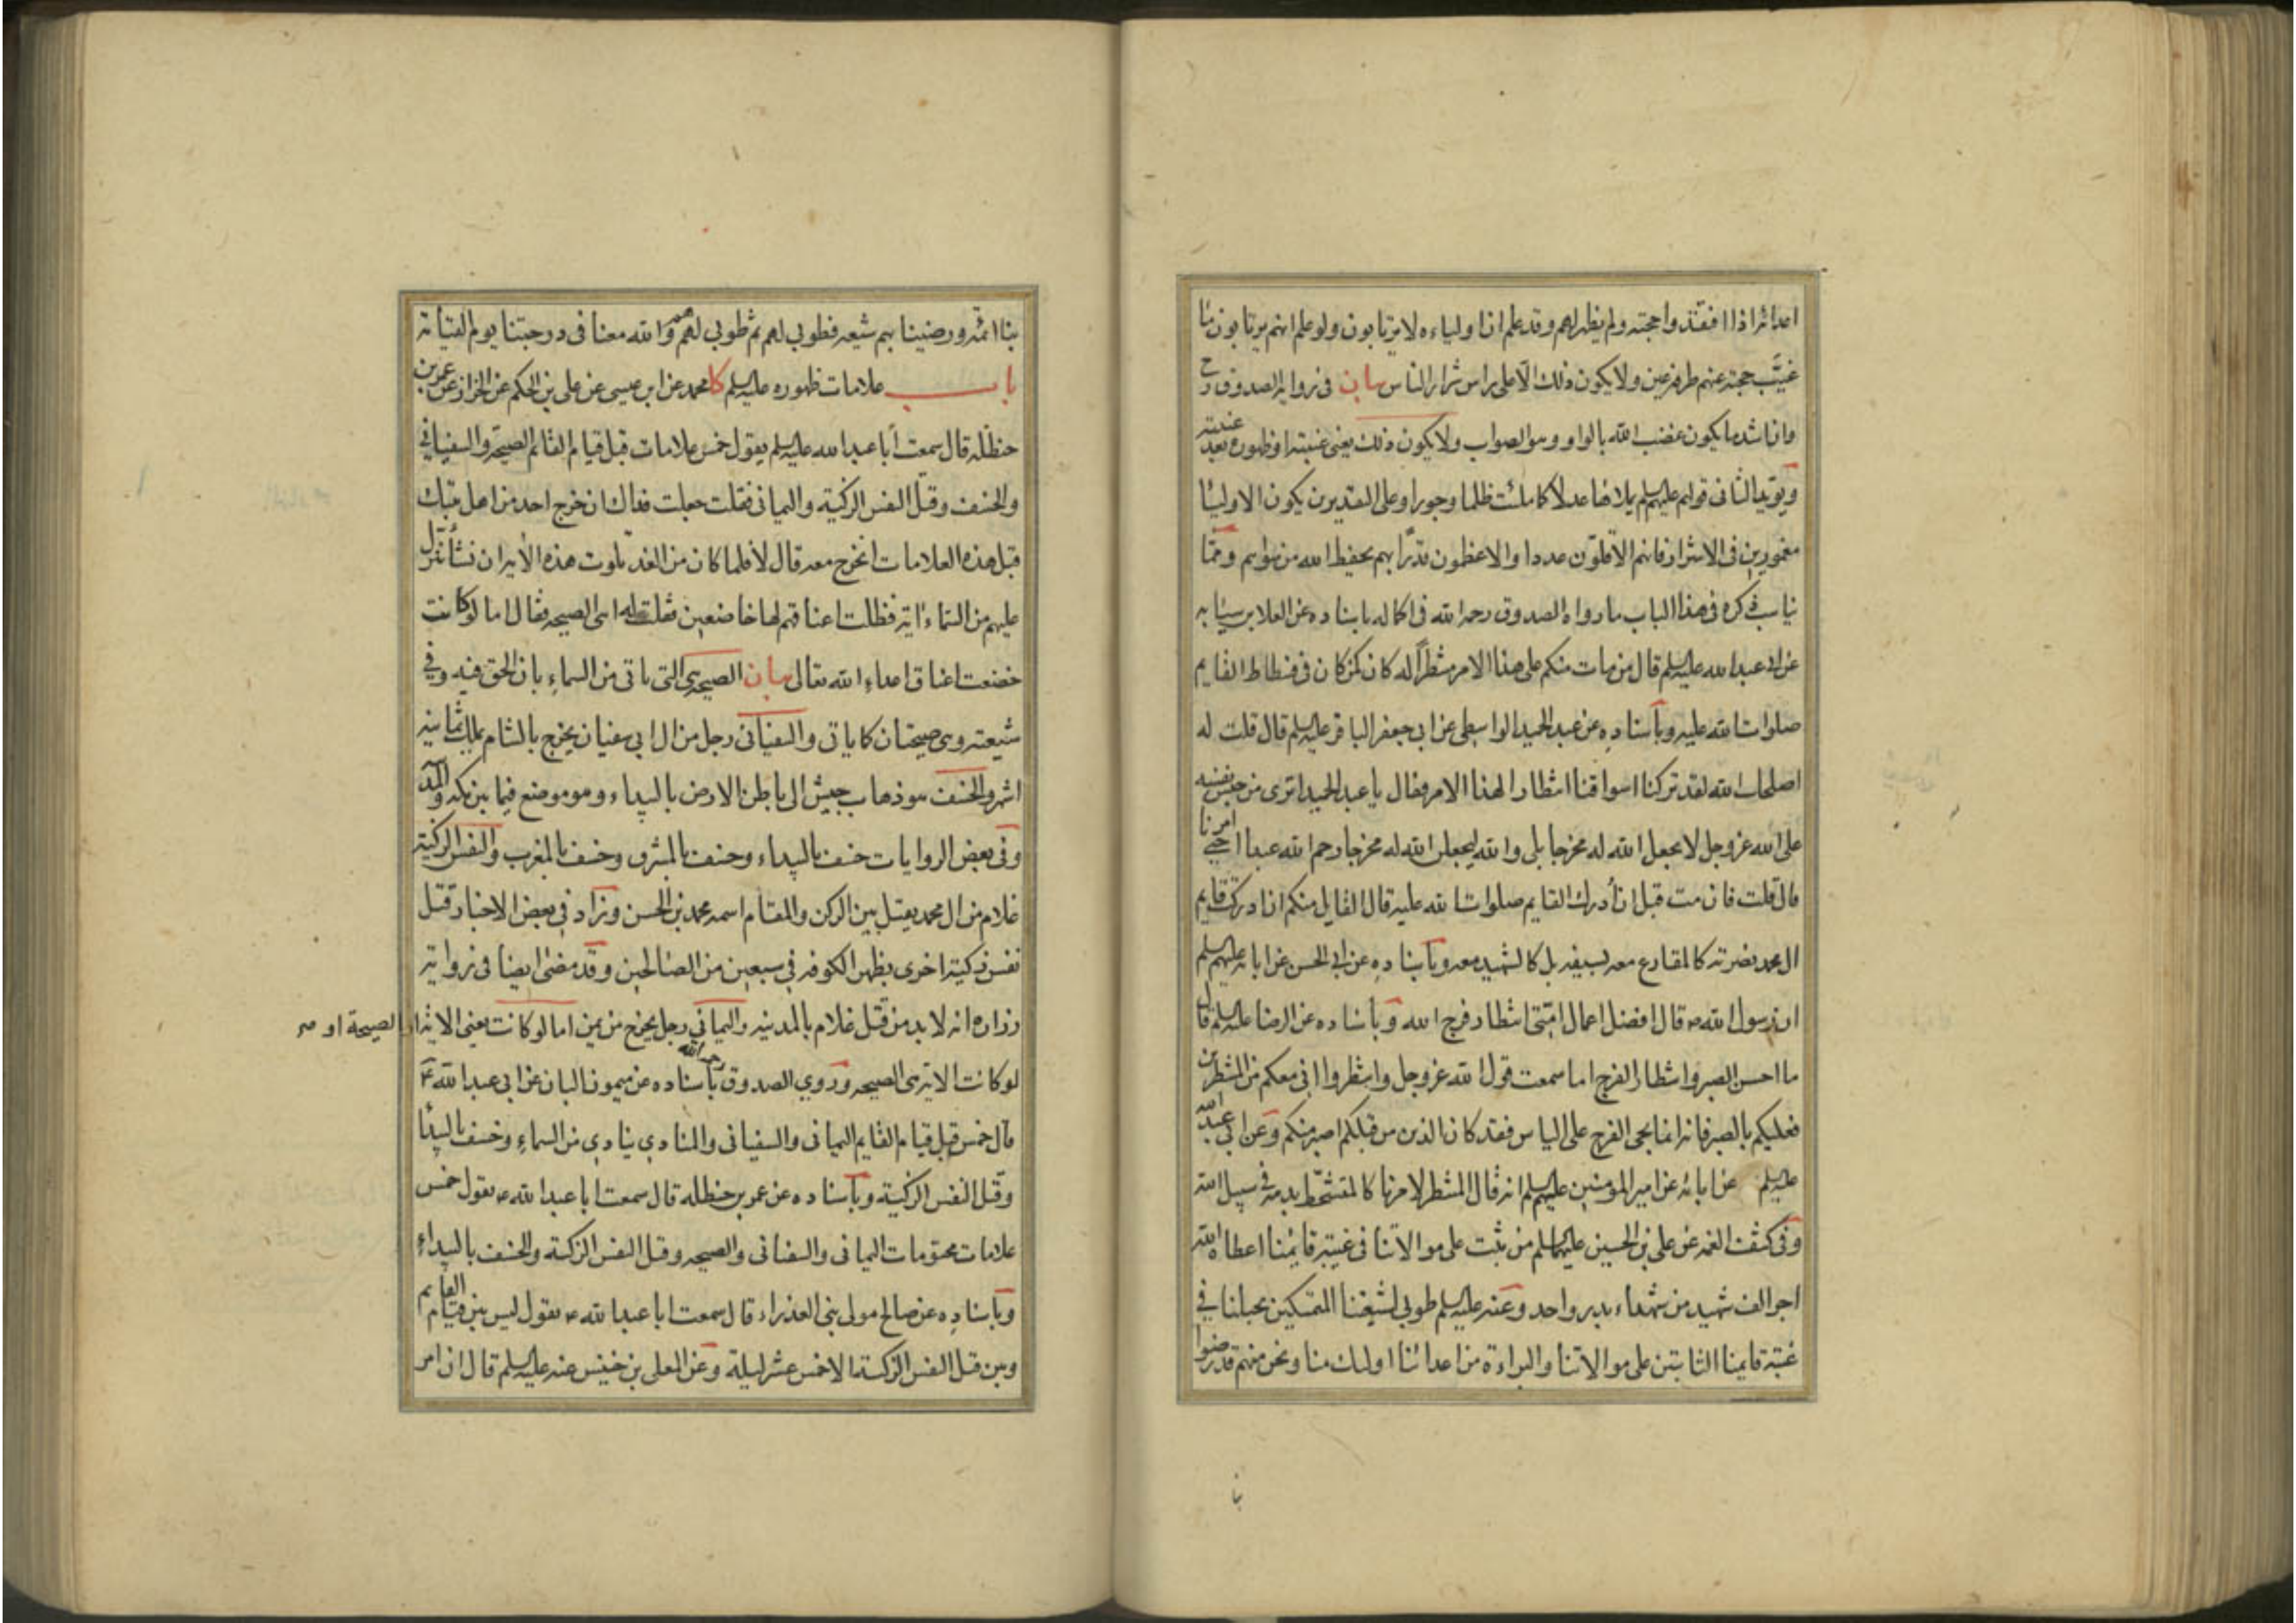 اعدائه اذا افتقدوا حجته ولم يظهر لهم وقد علم ان اولياءه لا يرتابون ولو علم انهم يرتابون ما
غيَّب حجته عنهم طرفة عين ولا يكون ذلك الّا على راس شرار الناس بيان فى رواية الصدوق رح
وان اشد ما يكون غضب الله بالواو وهو الصواب ولا يكون ذلك يعنى غيبته او ظهوره بعد غيبته
ويؤيد الثانى قولهم عليهم السلم يملاءها عدلا كما ملئت ظلما وجورا وعلى التقديرين يكون الاولياء
مغمورين فى الاشرار فانهم الاقلّون عددا والاعظمون قدرا بهم يحفظ الله من سواهم وممّا
يناسب ذكره فى هذا الباب ما رواه الصدوق رحمه الله فى اكماله باسناده عن العلا بن سيابه
عن ابى عبدالله عليه السلم قال من مات منكم على هذا الامر منتظراً له كان كمن كان فى فسطاط القايم
صلوات الله عليه وبأسناده عن عبد الحميد الواسطى عن ابى جعفر الباقر عليه السلم قال قلت له
اصلحك الله لقد تركنا اسواقنا انتظارا لهذا الامر فقال يا عبد الحميد اترى من حبس نفسه
على الله عز وجل لا يجعل الله له مخرجا بلى والله ليجعلن الله له مخرجا رحم الله عبدا احيى امرنا
قال قلت فان مت قبل ان أدرك القايم صلوات الله عليه قال القايل منكم ان ادركت قايم
ال محمد نصرته كالمقارع معه بسيفه بل كالشهيد معه وبأسناده عن ابى الحسن عن ابائه عليهم السلم
ان رسول الله ص قال افضل اعمال امّتى انتظار فرج الله وبأسناده عن الرضا عليه السلم قال
ما احسن الصبر وانتظار الفرج اما سمعت قول الله عز وجل وانتظروا انى معكم من المنتظرين
فعليكم بالصبر فانه انما يجى الفرج على الياس فقد كان الذين من قبلكم اصبر منكم وعن ابى عبد الله
عليه السلم عن ابائه عن امير المؤمنين عليهم السلم انه قال المنتظر لامرنا كالمتشحّط بدمه فى سبيل الله
وفى كشف الغمه عن على بن الحسين عليهما السلم من ثبت على موالاتنا فى غيبة قايمنا اعطاه الله
اجر الف شهيد من شهداء بدر واحد وعنه عليه السلم طوبى لشيعتنا المتمسكين بحبلنا فى
غيبة قايمنا الثابتين على موالاتنا والبراءة من اعدائنا اولئك منا ونحن منهم قد رضوا
بنا
بنا ائمّه ورضينا بهم شيعه فطوبى لهم ثم طوبى لهم هم والله معنا فى درجتنا يوم القيامة
باب علامات ظهوره عليه السلم كا محمد عن ابن عيسى عن على بن الحكم عن الخراز عن عمر بن
حنظله قال سمعت أبا عبد الله عليه السلم يقول خمس علامات قبل قيام القائم الصيحة والسفيانى
والخسف وقتل النفس الزكية واليمانى فقلت جعلت فداك ان خرج احد من اهل بيتك
قبل هذه العلامات انخرج معه قال لا فلما كان من الغد تلوت هذه الآية ان نشأ ننزل
عليهم من السّماء اية فظلت اعناقهم لها خاضعين فقلت له اهى الصيحه فقال اما لو كانت
خضعت اعناق اعداء الله تعالى بيان الصيحه هى التى تاتى من السماء بان الحق فيه وفى
شيعته وهى صيحتان كما ياتى والسفيانى رجل من ال ابى سفيان يخرج بالشام يملك ثمانية
اشهر والخسف هو ذهاب جيش الى باطن الارض بالبيداء وهو موضع فيما بين مكه والمدينه
وفى بعض الروايات خسف بالبيداء وخسف بالمشرق وخسف بالمغرب والنفس الزكية
غلام من ال محمد يقتل بين الركن والمقام اسمه محمد بن الحسن وزاد فى بعض الاخبار قتل
نفس زكية اخرى بظهر الكوفه فى سبعين من الصالحين وقد مضى ايضا فى رواية
زراره انه لا بد من قتل غلام بالمدينه واليمانى رجل يخرج من يمن اما لو كانت يعنى الاية
الصيحة او ص
لو كانت الاية هى الصيحه وروى الصدوق رحمه الله بأسناده عن ميمون البان عن ابى عبد الله ع
قال خمس قبل قيام القايم اليمانى والسفيانى والمنادى ينادى من السماء وخسف بالبيداء
وقتل النفس الزكية وبأسناده عن عمر بن حنظله قال سمعت ابا عبد الله ع يقول خمس
علامات محتومات اليمانى والسفيانى والصيحه وقتل النفس الزكية والخسف بالبيداء
وبأسناده عن صالح مولى بنى العذراء قال سمعت ابا عبد الله ع يقول ليس بين قيام القايم
وبين قتل النفس الزكية الا خمس عشر ليلة وعن المعلى بن خنيس عنه عليه السلم قال ان امر